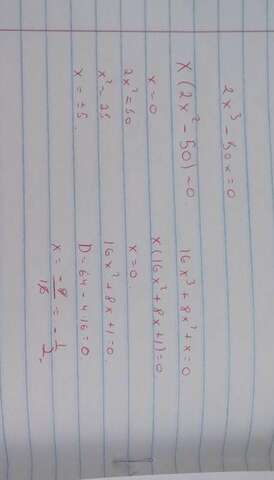 2x³ - 50x = 0
x(2x² - 50) = 0.
x = 0
2x² = 50
x² = 25
x = ±5.
16x³ + 8x² + x = 0
x(16x² + 8x + 1) = 0.
x = 0.
16x² + 8x + 1 = 0.
D = 64 - 4·16 = 0
x = -8/16 = -1/2.